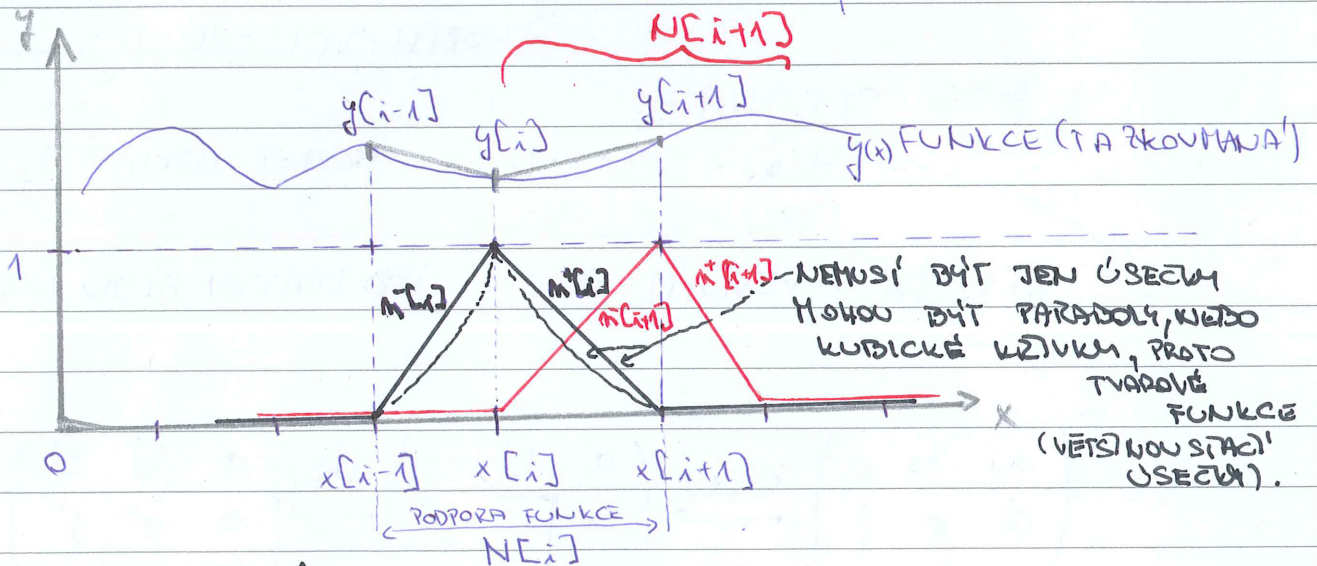 y
N[i+1]
y[i-1]
y[i]
y[i+1]
y(x) FUNKCE (TA ZKOUMANÁ)
1
n⁻[i]
n⁺[i]
n⁻[i+1]
n⁺[i+1]
NEMUSÍ BÝT JEN ÚSEČKY
MOHOU BÝT PARABOLY, NEBO
KUBICKÉ KŘIVKY, PROTO
TVAROVÉ
FUNKCE
(VĚTŠINOU STAČÍ
ÚSEČKY).
x
0
x[i-1]
x[i]
x[i+1]
PODPORA FUNKCE
N[i]